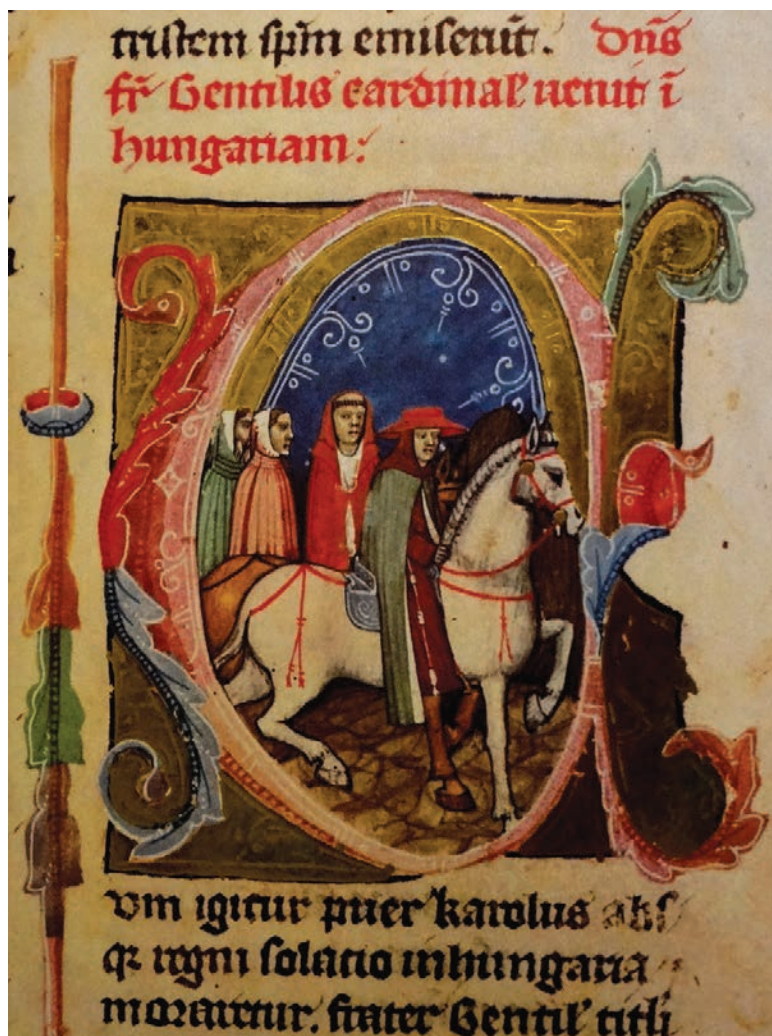 tristem sp̅m emiserūt. Dn̅s
fr̅ Gentilis cardinal' uenit ī
hungariam:
um igitur puer karolus abs
q3 regni solacio in hungaria
moraretur. frater Gentil' titli